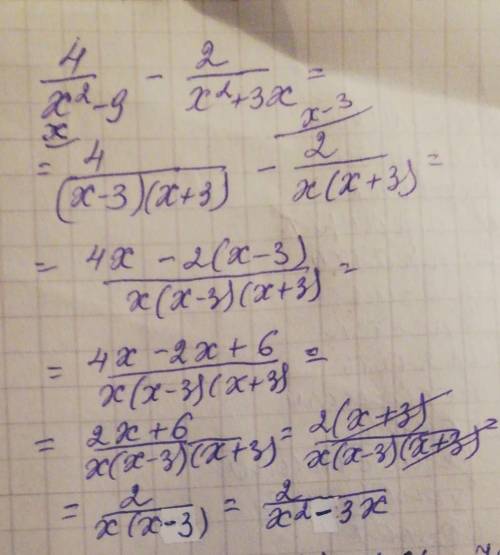 4/(x²-9) - 2/(x²+3x) =
= 4/((x-3)(x+3)) - 2/(x(x+3)) =
x x-3
= (4x - 2(x-3))/(x(x-3)(x+3)) =
= (4x - 2x + 6)/(x(x-3)(x+3)) =
= (2x + 6)/(x(x-3)(x+3)) = 2(x+3)/(x(x-3)(x+3)) =
= 2/(x(x-3)) = 2/(x² - 3x)